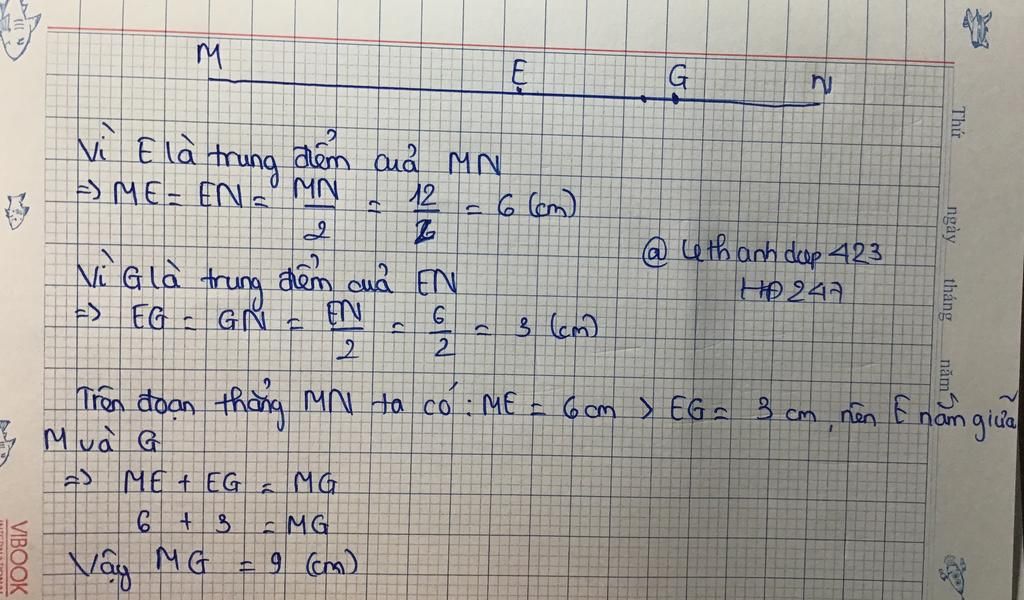 M E G N
Vì E là trung điểm của MN
=> ME = EN = MN/2 = 12/2 = 6 (cm)
@ lethanhdep423
HĐ247
Vì G là trung điểm của EN
=> EG = GN = EN/2 = 6/2 = 3 (cm)
Trên đoạn thẳng MN ta có: ME = 6cm > EG = 3 cm, nên E nằm giữa
M và G
=> ME + EG = MG
6 + 3 = MG
Vậy MG = 9 (cm)
Thứ ngày tháng năm
VIBOOK